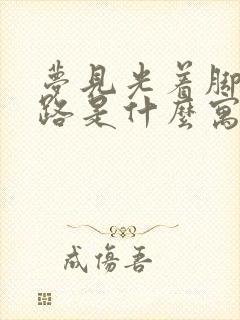 夢見光着脚
路是什麼寓
成傷吾